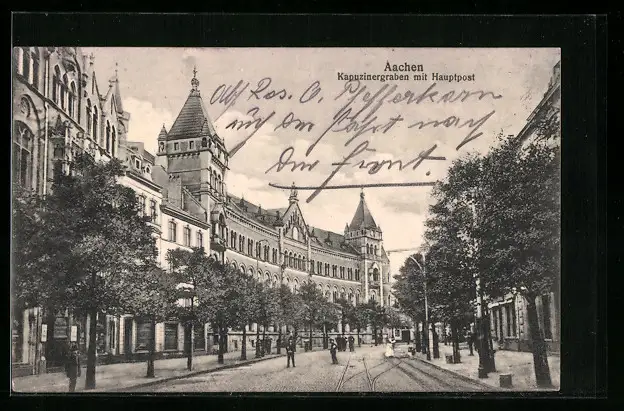 Aachen
Kapuzinergraben mit Hauptpost
Abs. Res. O. Pfefferkorn
auf der Fahrt nach
der Front.